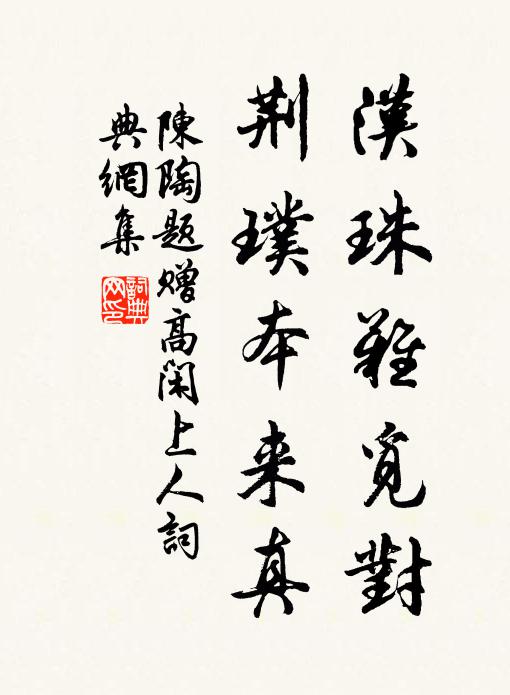 漢珠難覓對
荆璞本来真
陳陶题贈高閑上人詞
典網集
詞典
网印